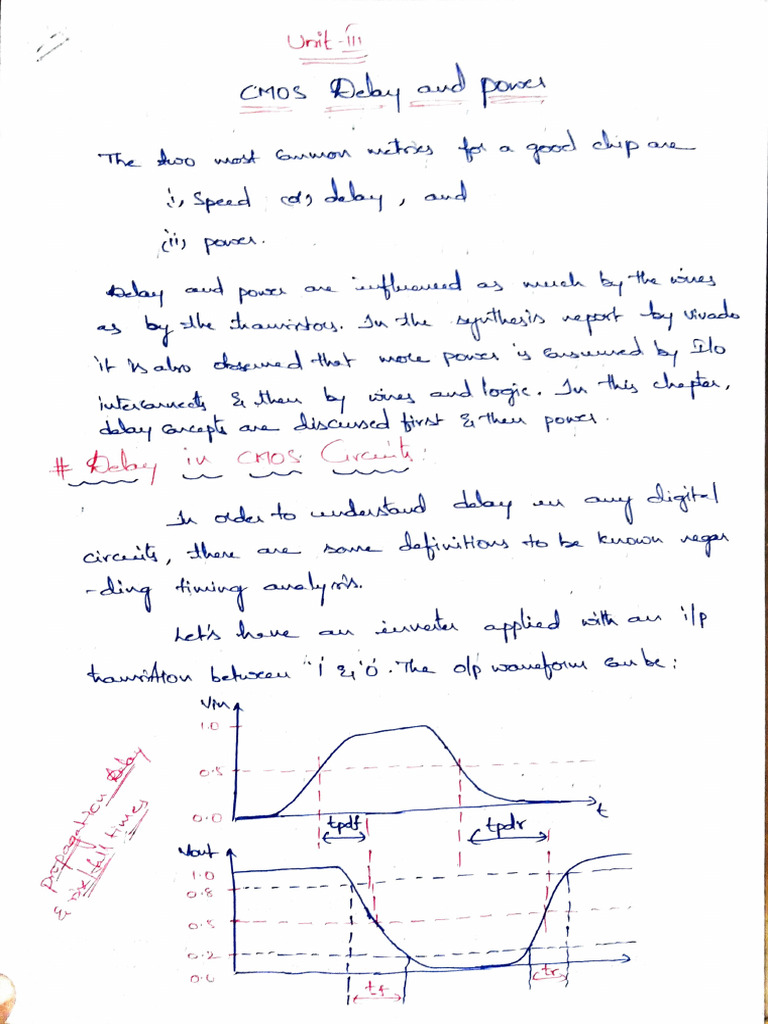 Unit-III
CMOS Delay and power
The two most common metrics for a good chip are
(i) Speed (or) delay, and
(ii) power.
Delay and power are influenced as much by the wires
as by the transistors. In the synthesis report by vivado
it is also observed that more power is consumed by I/o
interconnects & then by wires and logic. In this chapter,
delay concepts are discussed first & then power.
# Delay in CMOS Circuits:
In order to understand delay in any digital
circuits, there are some definitions to be known regar
-ding timing analysis.
Let's have an inverter applied with an i/p
transition between '1' & '0'. The o/p waveform can be:
Vin
1.0
0.5
0.0
t
tpdf
tpdr
Propagation Delay
& rise/fall times
Vout
1.0
0.8
0.5
0.2
0.0
tf
tr